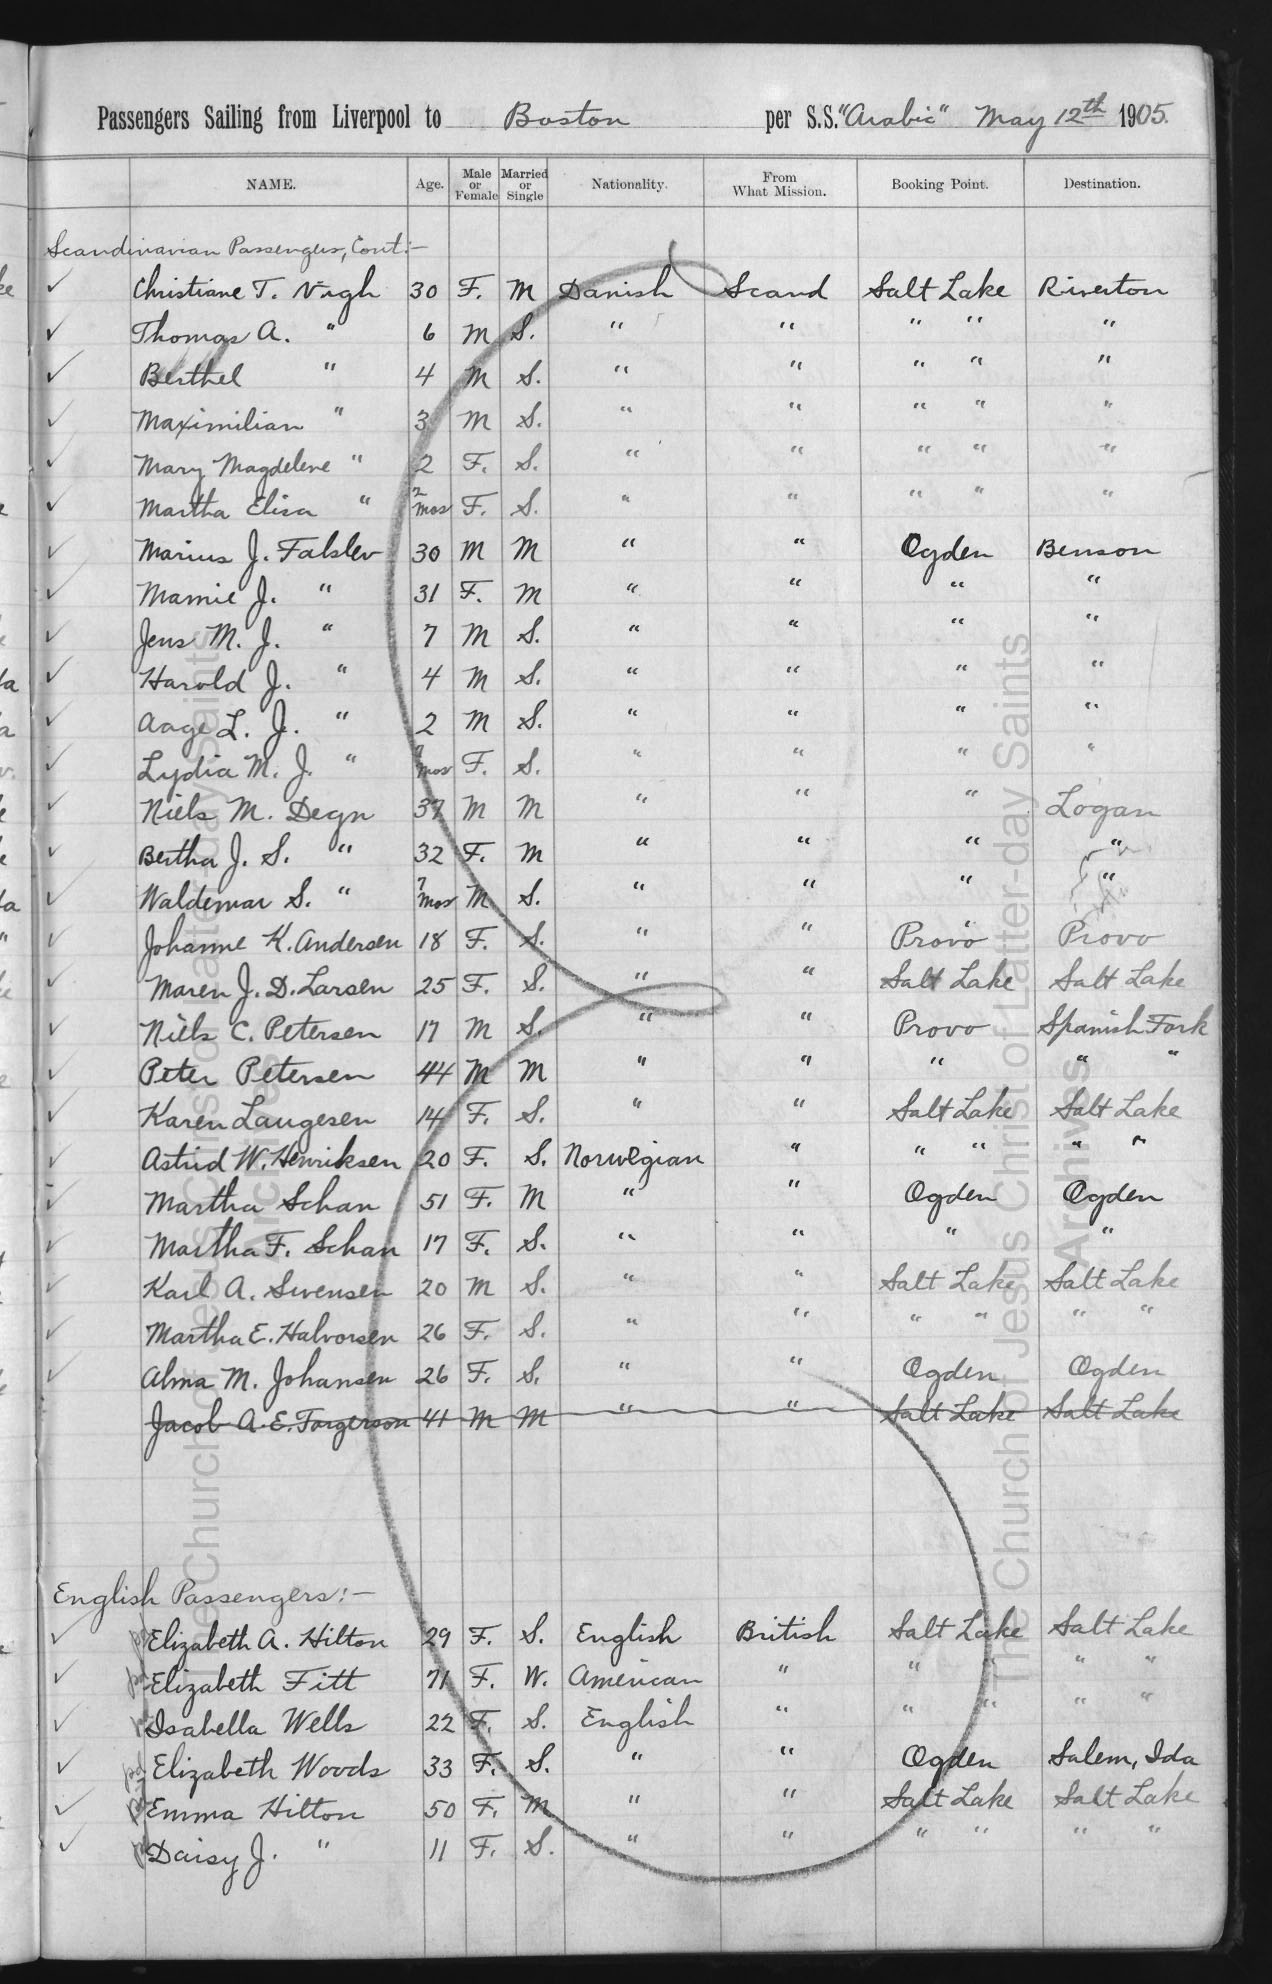 Passengers Sailing from Liverpool to Boston per S.S. "Arabic" May 12th 1905.
NAME. Age. Male or Female Married or Single Nationality. From What Mission. Booking Point. Destination.
Scandinavian Passengers, Cont:-
✓ Christiane T. Nygh 30 F. M Danish Scand Salt Lake Riverton
✓ Thomas A. " 6 M S. " " " " "
✓ Berthel " 4 M S. " " " " "
✓ Maximilian " 3 M S. " " " " "
✓ Mary Magdelene " 2 F. S. " " " " "
✓ Martha Elisa " 2 mos F. S. " " " " "
✓ Marius J. Falslev 30 M M " " Ogden Benson
✓ Mamie J. " 31 F. M " " " "
✓ Jens M. J. " 7 M S. " " " "
✓ Harold J. " 4 M S. " " " "
✓ Aage L. J. " 2 M S. " " " "
✓ Lydia M. J. " mos F. S. " " " "
✓ Niels M. Degn 37 M M " " " Logan
✓ Bertha J. S. " 32 F. M " " " "
✓ Waldemar S. " 7 mos M S. " " " "
✓ Johanne K. Andersen 18 F. S. " " Provo Provo
✓ Maren J. D. Larsen 25 F. S. " " Salt Lake Salt Lake
✓ Niels C. Petersen 17 M S. " " Provo Spanish Fork
✓ Peter Petersen 44 M M " " " " "
✓ Karen Laugesen 14 F. S. " " Salt Lake Salt Lake
✓ Astrid W. Henriksen 20 F. S. Norwegian " " " " "
✓ Martha Schan 51 F. M " " Ogden Ogden
✓ Martha F. Schan 17 F. S. " " " "
✓ Karl A. Svensen 20 M S. " " Salt Lake Salt Lake
✓ Martha E. Halvorsen 26 F. S. " " " " " "
✓ Alma M. Johansen 26 F. S. " " Ogden Ogden
Jacob A. E. Torgerson 41 M M " " Salt Lake Salt Lake
English Passengers:-
✓ Elizabeth A. Hilton 29 F. S. English British Salt Lake Salt Lake
✓ Elizabeth Fitt 71 F. W. American " " " " "
✓ Isabella Wells 22 F. S. English " " " " "
✓ Elizabeth Woods 33 F. S. " " Ogden Salem, Ida
✓ Emma Hilton 50 F. M " " Salt Lake Salt Lake
✓ Daisy J. " 11 F. S. " " " " " "
The Church of Jesus Christ of Latter-day Saints
Archives
The Church of Jesus Christ of Latter-day Saints
Archives